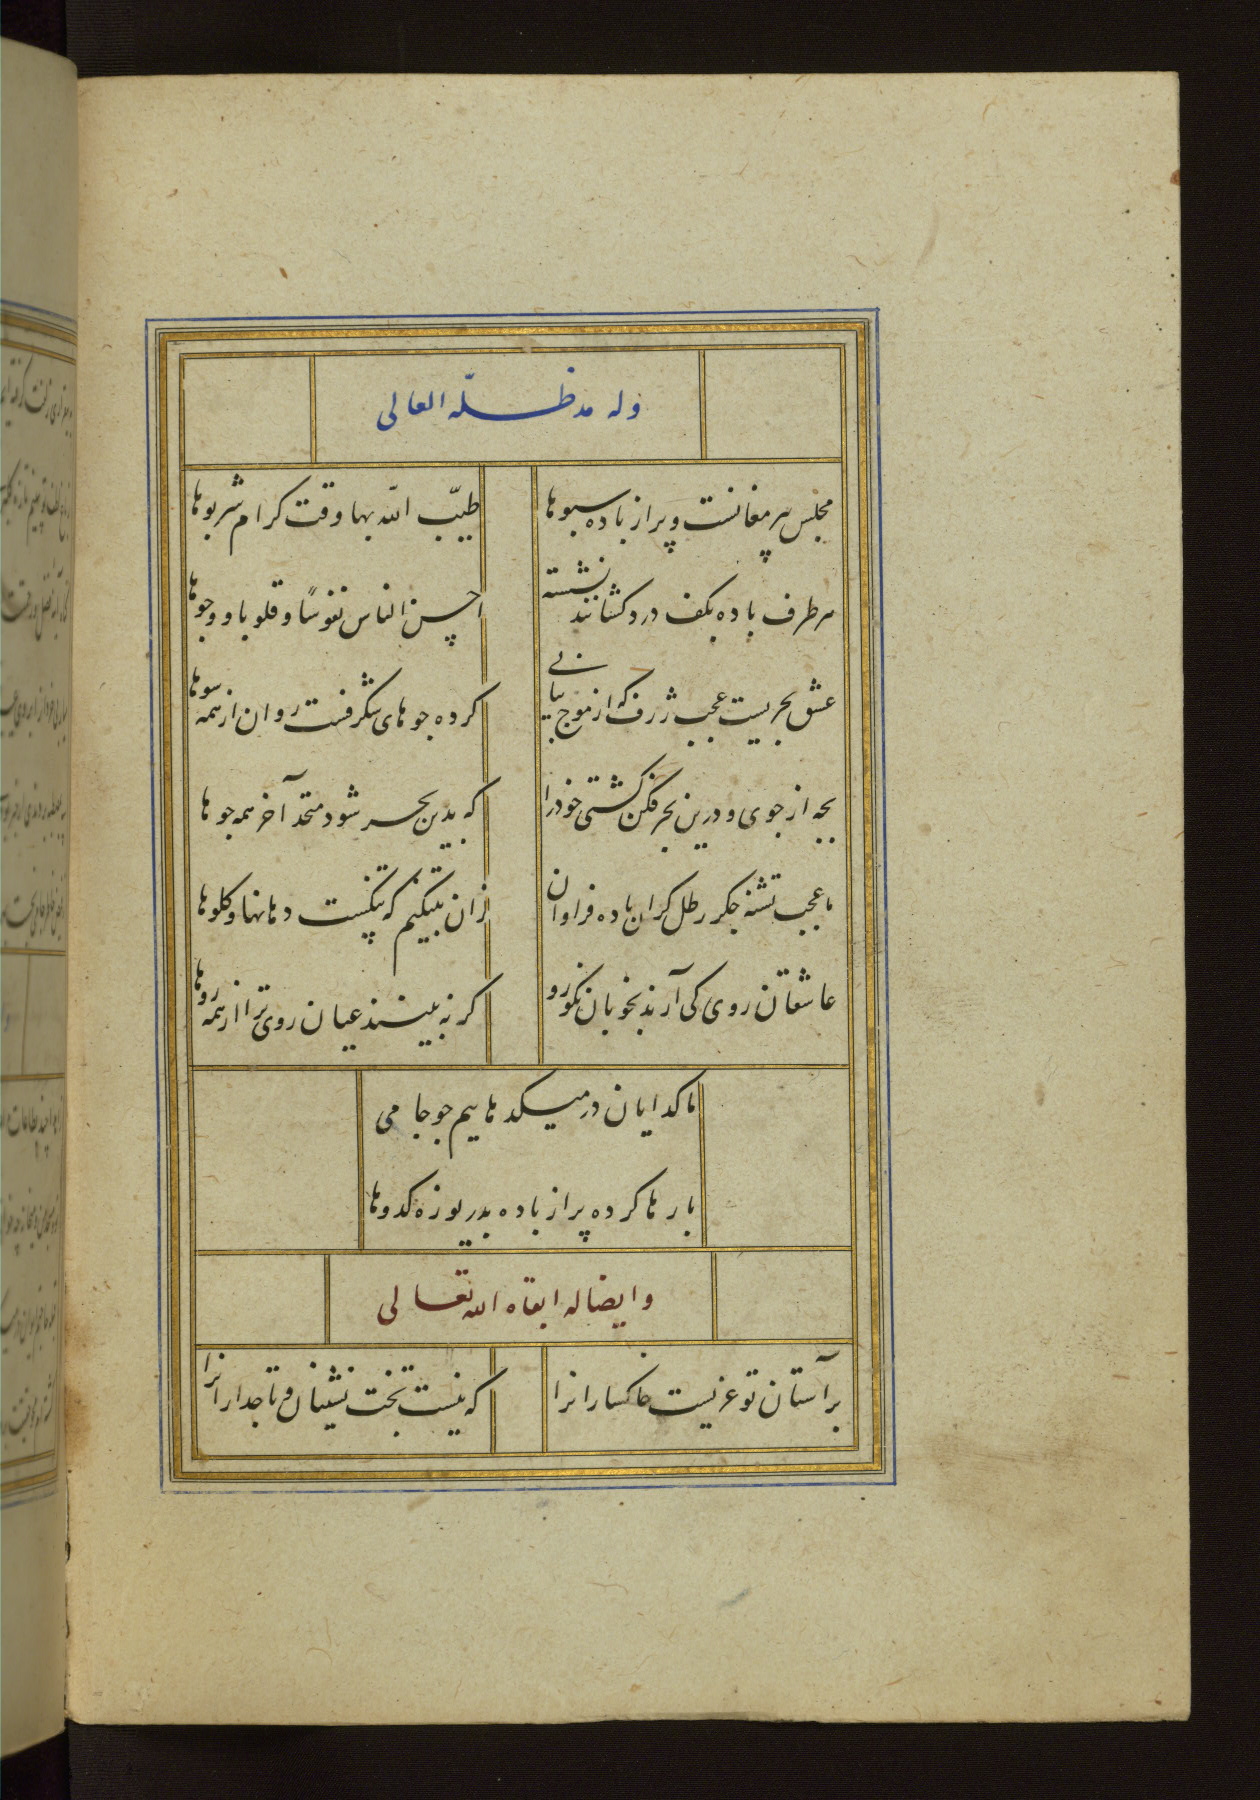 وله مد ظلّه العالی
مجلس پیر مغانست و پر از باده سبوها
طیّب الله بها وقت کرام شربوها
هر طرف باده بکف دردکشانند نشسته
احسن الناس نفوسًا و قلوبا و وجوها
عشق بحریست عجب ژرف که از موج پیاپی
کرده جوهای شگرفست روان از همه سوها
بجه از جوی و درین بحر فکن کشتی خود را
که بدین بحر شود متحد آخر همه جوها
ما عجب تشنه جگر رطل گران باده فراوان
زان بتنگیم که تنگست دهانها و گلوها
عاشقان روی کی آرند بخوبان نکو رو
گر نه بینند عیان روی ترا از همه روها
ما گدایان در میکده‌هاییم چو جامی
بارها کرده پر از باده بدریوزه کدوها
و ایضا له ابقاه الله تعالی
بر آستان تو عزیست خاکسارانرا
که نیست تخت نشینان و تاجدارانرا